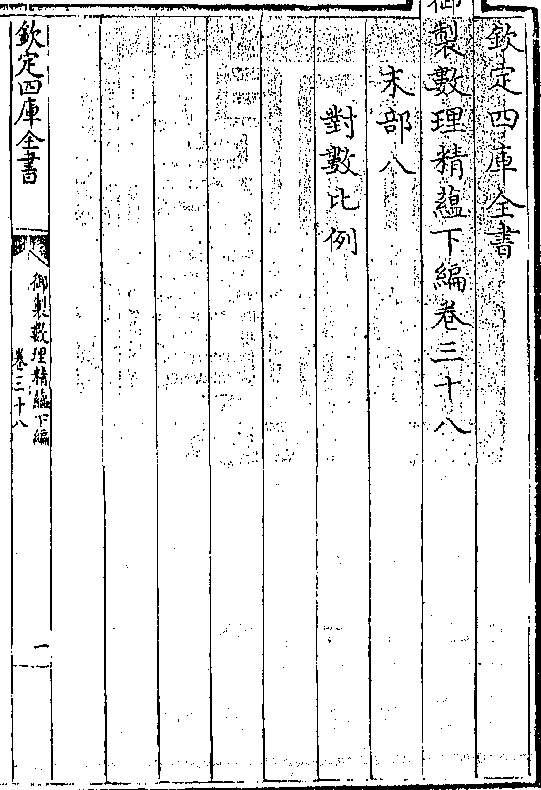 欽定四庫全書
御製數理精蘊下編卷三十八
末部八
對數比例
欽定四庫全書
御製數理精蘊下編
卷三十八
一